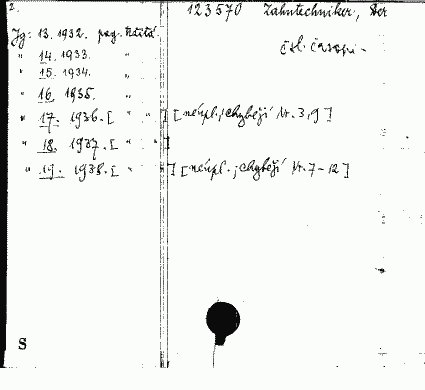 2. 123570 Zahntechniker, Der
Jg: 13. 1932. pag. tištěté
čsl. časopi-
" 14. 1933. "
" 15. 1934. "
" 16. 1935. "
" 17. 1936. [ " " ] [neúpl.; chybějí Nr. 3,9]
" 18. 1937. [ " " ]
" 19. 1938. [ " " ] [neúpl.; chybějí Nr. 7-12]
S